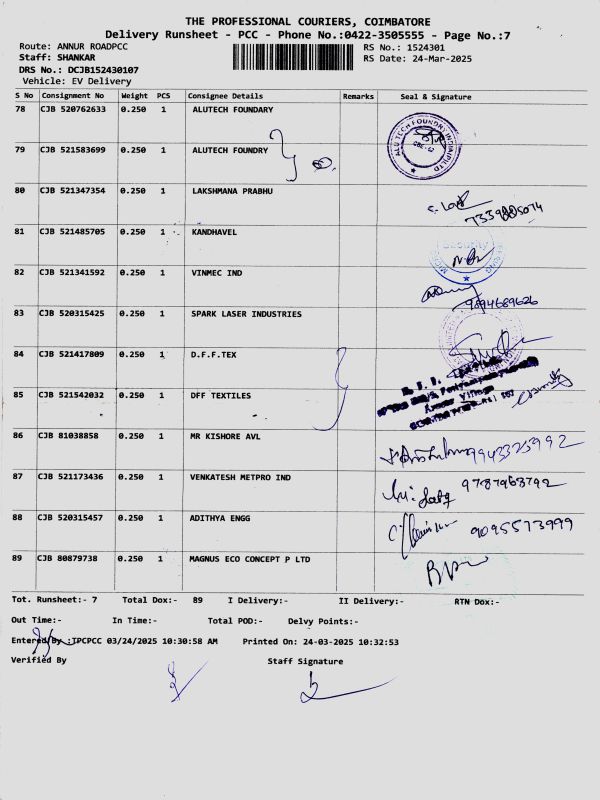 THE PROFESSIONAL COURIERS, COIMBATORE
Delivery Runsheet - PCC - Phone No.:0422-3505555 - Page No.:7
Route: ANNUR ROADPCC RS No.: 1524301
Staff: SHANKAR RS Date: 24-Mar-2025
DRS No.: DCJB152430107
Vehicle: EV Delivery
S No Consignment No Weight PCS Consignee Details Remarks Seal & Signature
78 CJB 520762633 0.250 1 ALUTECH FOUNDARY
ALU TECH FOUNDRY
79 CJB 521583699 0.250 1 ALUTECH FOUNDRY
80 CJB 521347354 0.250 1 LAKSHMANA PRABHU
81 CJB 521485705 0.250 1 KANDHAVEL
Security
82 CJB 521341592 0.250 1 VINMEC IND
9894689626
83 CJB 520315425 0.250 1 SPARK LASER INDUSTRIES
84 CJB 521417809 0.250 1 D.F.F.TEX
85 CJB 521542032 0.250 1 DFF TEXTILES
86 CJB 81038858 0.250 1 MR KISHORE AVL
9943325992
87 CJB 521173436 0.250 1 VENKATESH METPRO IND
9787963792
88 CJB 520315457 0.250 1 ADITHYA ENGG
9095573999
89 CJB 80879738 0.250 1 MAGNUS ECO CONCEPT P LTD
Tot. Runsheet:- 7 Total Dox:- 89 I Delivery:- II Delivery:- RTN Dox:-
Out Time:- In Time:- Total POD:- Delvy Points:-
Entered By :TPCPCC 03/24/2025 10:30:58 AM Printed On: 24-03-2025 10:32:53
Verified By Staff Signature